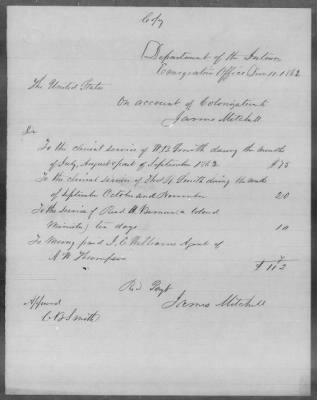 Copy
Department of the Interior
Emigration Office Dec 11. 1862
The United States
On account of Colonization to
James Mitchell
Dr
To the clerical service of W. B. Smith during the months
of July, August & part of September 1862 $75
To the clerical service of Thos H. Smith during the months
of September October and November 20
To the service of Revd H. a Colored
Minister, ten days 10
To money paid J. E. Williams Agent of
A W Thompson 7
$ 112
Recd Payt
James Mitchell
Approved
C. B. Smith